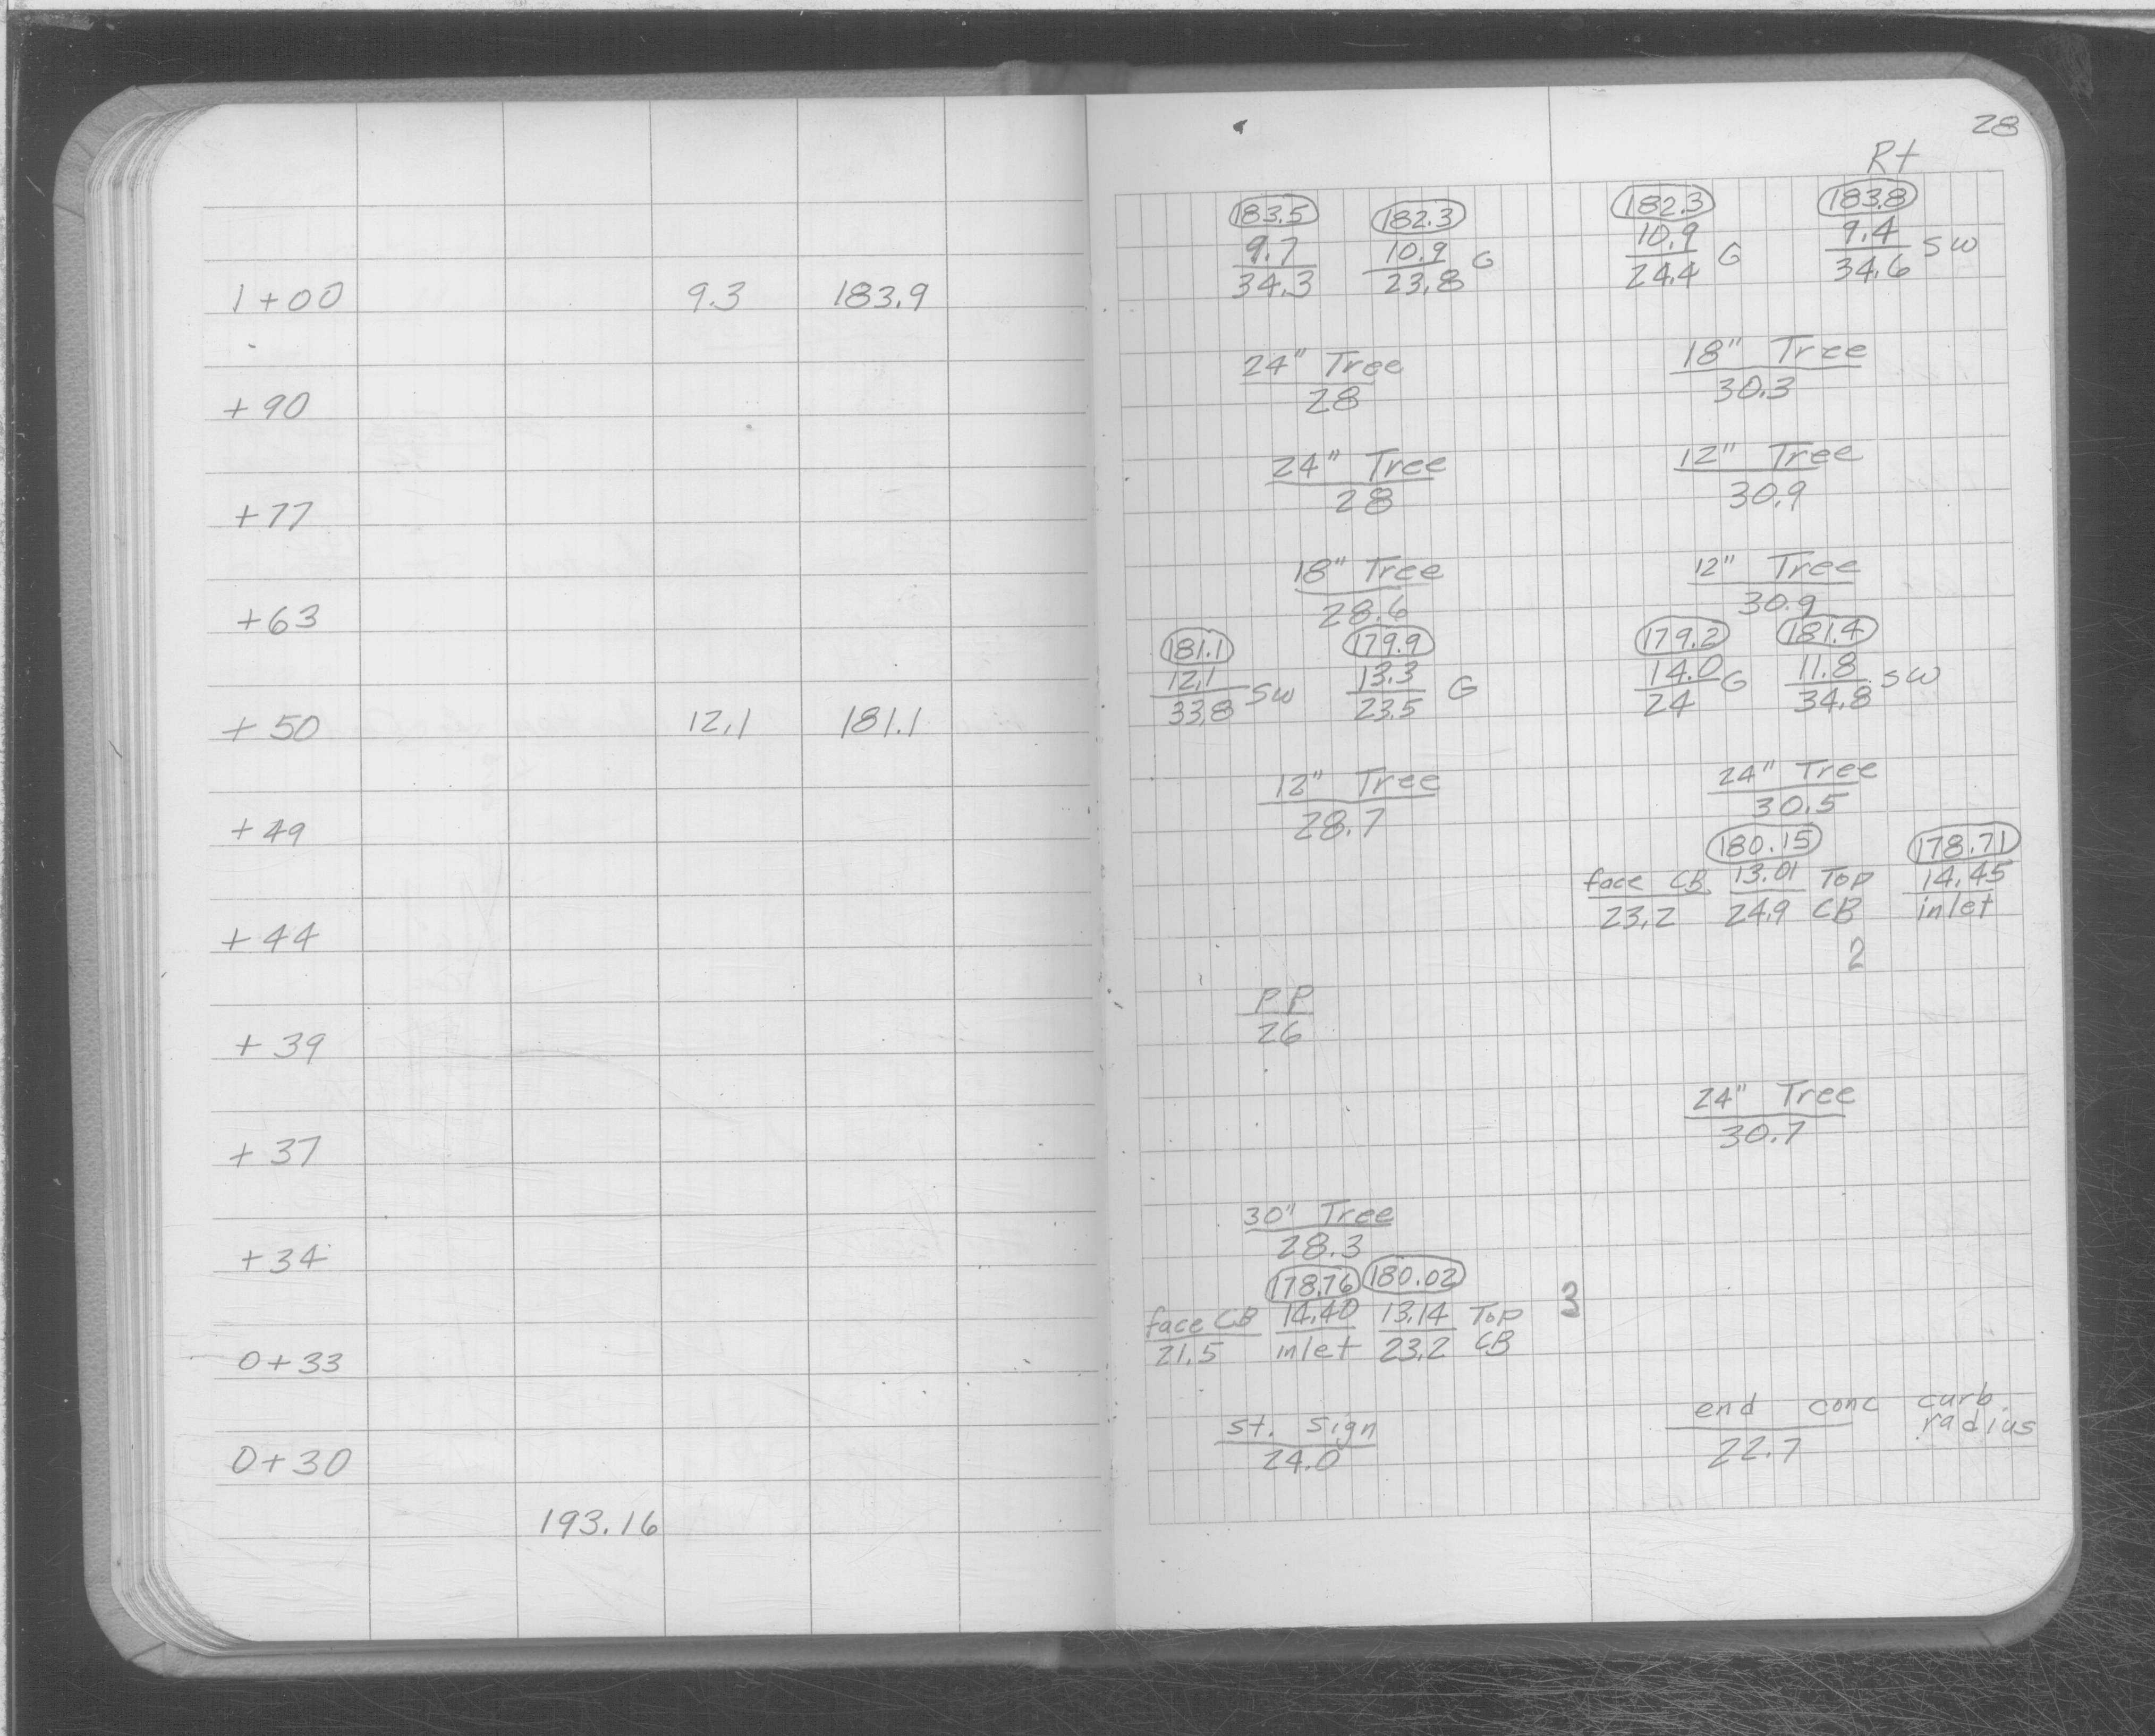 28
Rt
183.5 182.3 182.3 183.8
9.7 10.9 G 10.9 G 9.4 SW
34.3 23.8 24.4 34.6
1+00 9.3 183.9
24" Tree 18" Tree
28 30.3
+90
24" Tree 12" Tree
28 30.9
+77
18" Tree 12" Tree
28.6 30.9
+63
181.1 179.9 179.2 181.4
12.1 SW 13.3 G 14.0 G 11.8 SW
33.8 23.5 24 34.8
+50 12.1 181.1
12" Tree 24" Tree
28.7 30.5
+49
180.15 178.71
face CB 13.01 Top 14.45
23.2 24.9 CB inlet
+44
2
PP
26
+39
24" Tree
30.7
+37
30" Tree
28.3
+34
178.76 180.02
face CB 14.40 13.14 Top 3
21.5 inlet 23.2 CB
0+33
st. sign end conc curb radius
24.0 22.7
0+30
193.16